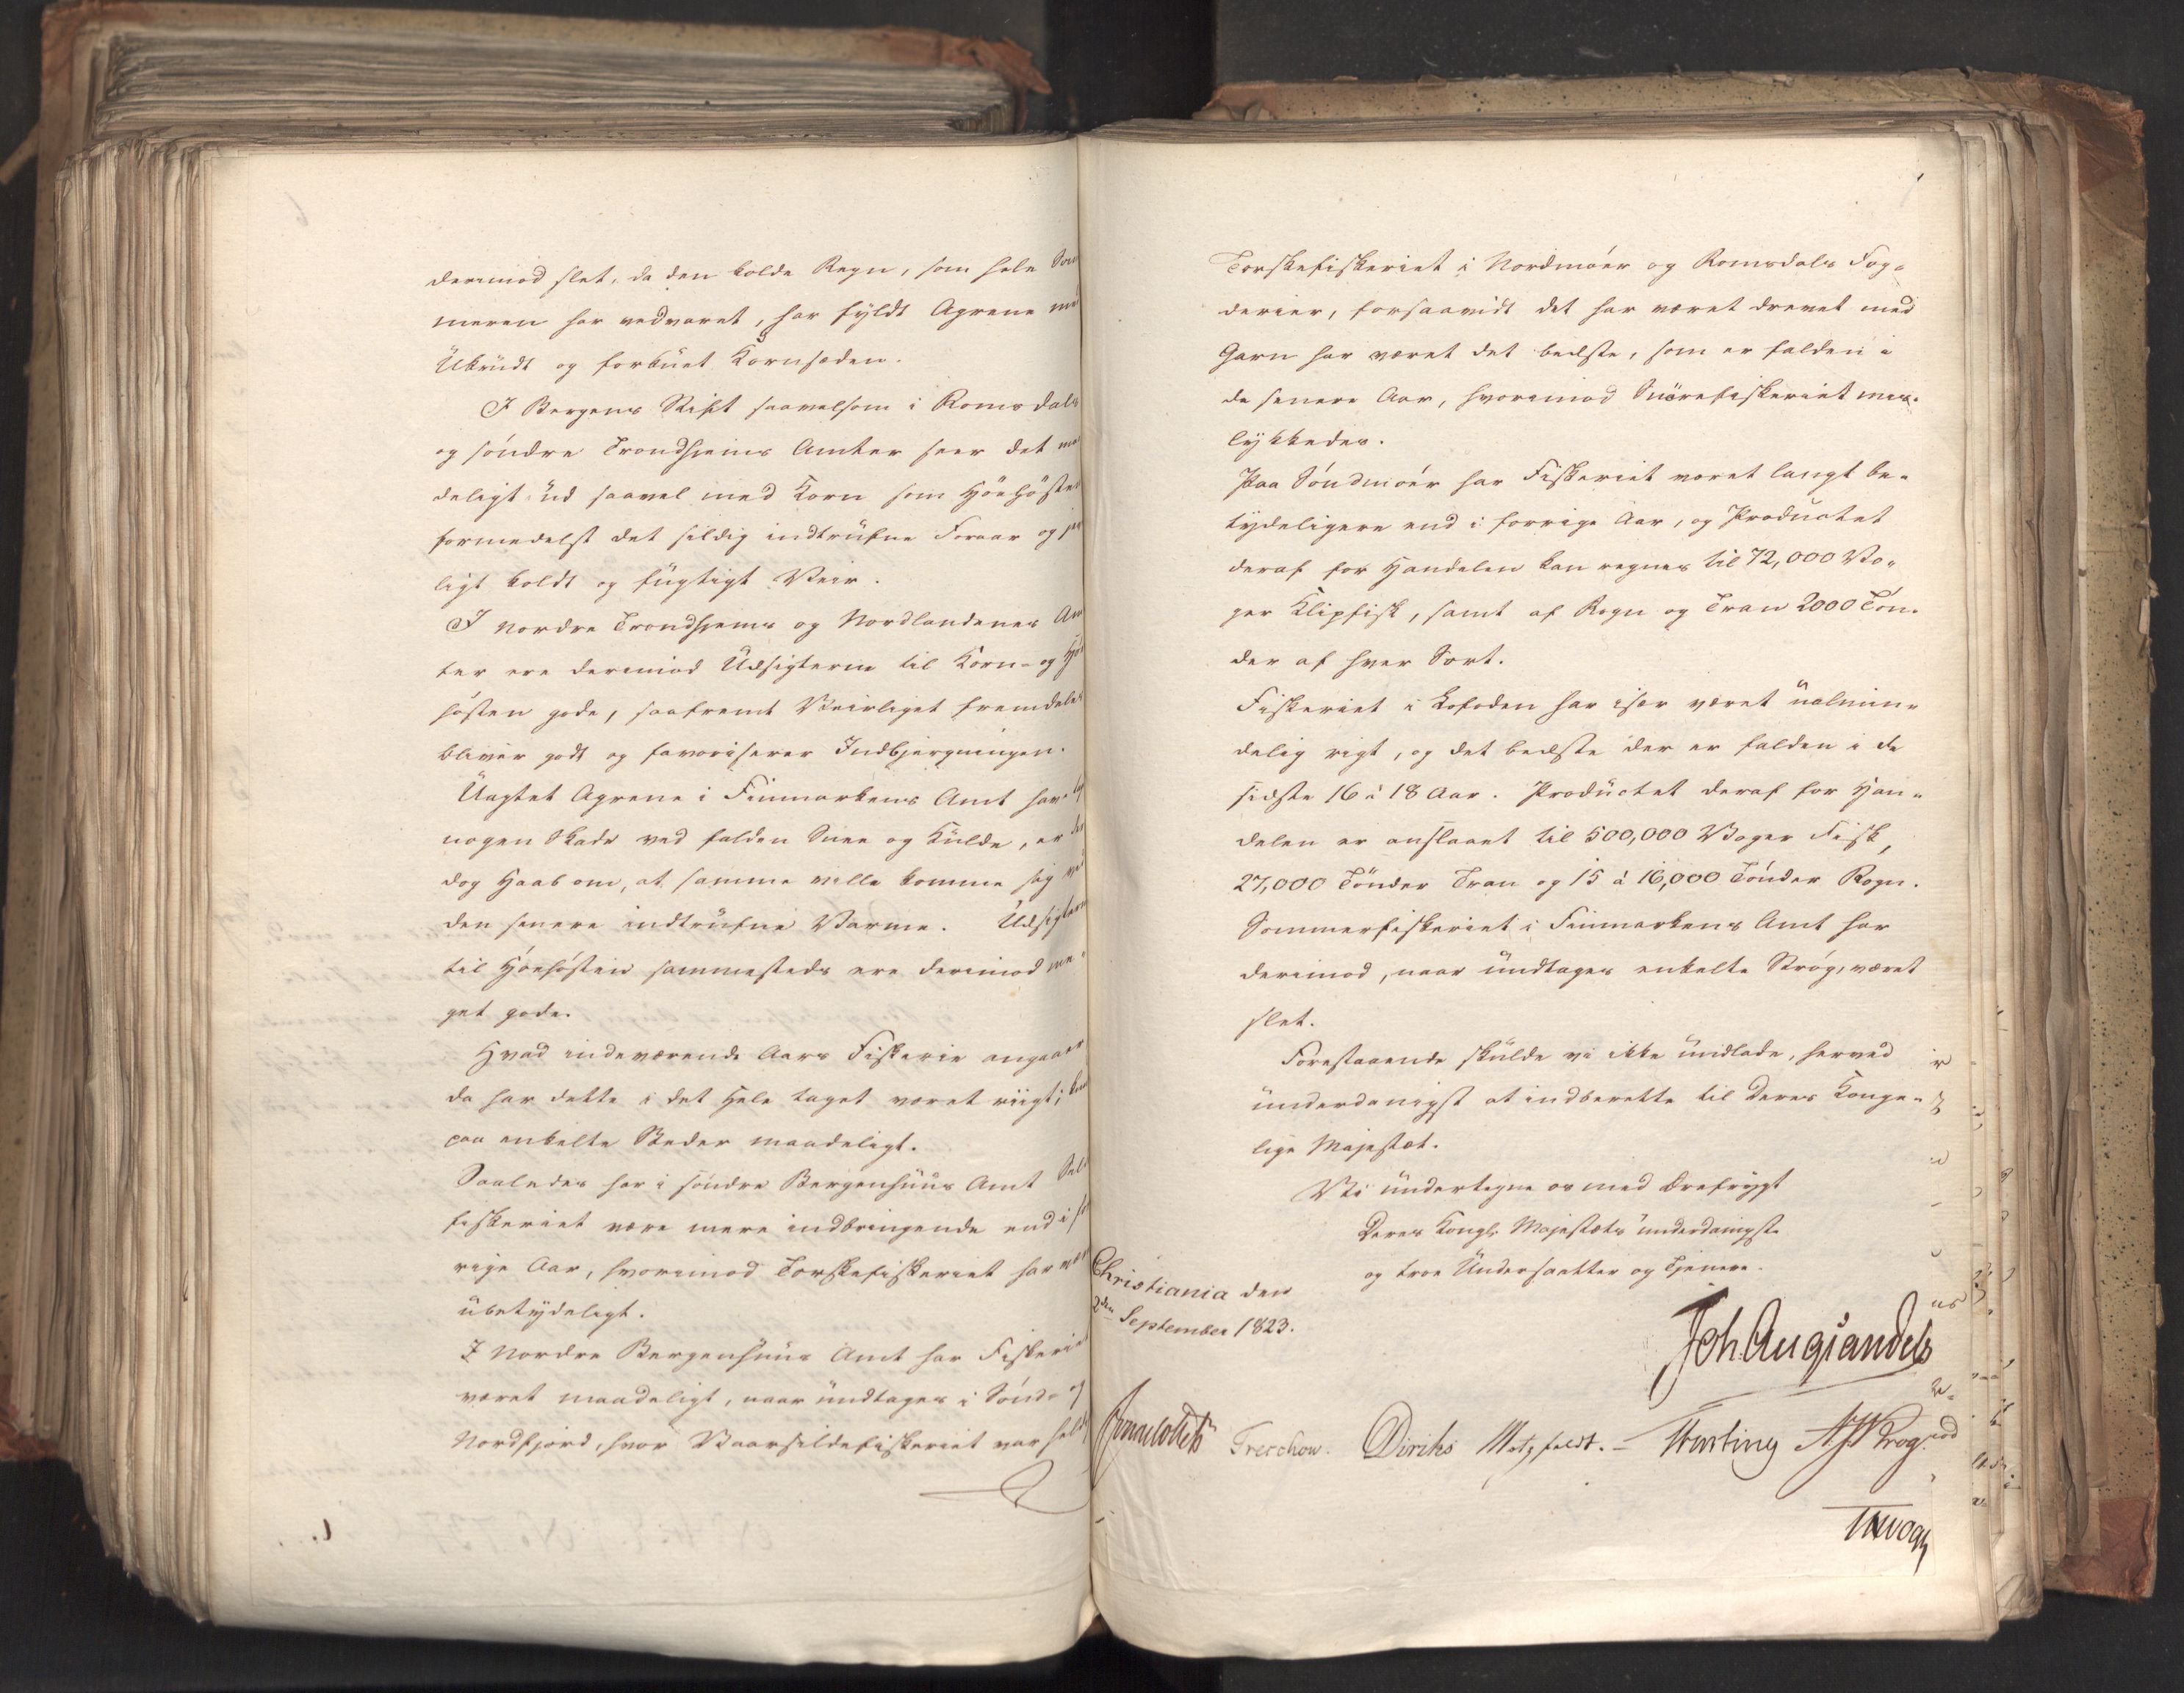 derimod slet, da den kolde Regn, som hele Som
meren har vedvaret, har fyldt Agrene med
Ukrudt og forkuet Kornsæden.
I Bergens Stift saavelsom i Romsdals
og søndre Trondhjems Amter seer det maa
deligt ud saavel med Korn som Høehøsten
formedelst det sildig indtrufne Foraar og jevn
ligt koldt og fugtigt Veir.
I Nordre Trondhjems og Nordlandenes Am
ter ere derimod Udsigterne til Korn- og Høe
høsten gode, saafremt Veirliget fremdeles
bliver godt og favoriserer Indbjergningen.
Uagtet Agrene i Finmarkens Amt har
nogen Skade ved falden Snee og Kulde, er der
dog Haab om, at samme ville komme sig ved
den senere indtrufne Varme. Udsigterne
til Høehøsten sammesteds ere derimod me-
get gode.
Hvad indeværende Aars Fiskerie angaaer
da har dette i det Hele taget været riigt; kun
paa enkelte Steder maadeligt.
Saaledes har i søndre Bergenhuus Amt Silde
fiskeriet være mere indbringende end i for
rige Aar, hvorimod Torskefiskeriet har været
ubetydeligt.
I Nordre Bergenhuus Amt har Fiskeriet
været maadeligt, naar undtages i Sønd- og
Nordfjord, hvor Vaarsildefiskeriet var heldigt
Torskefiskeriet i Nordmøer og Romsdals Fog-
derier, forsaavidt det har været drevet med
Garn har været det bedste, som er falden i
de senere Aar, hvorimod Snørefiskeriet mis-
lykkedes.
Paa Søndmøer har Fiskeriet været langt be-
tydeligere end i forrige Aar, og Productet
deraf for Handelen kan regnes til 72,000 Vo-
ger Klipfisk, samt af Rogn og Tran 2000 Tøn-
der af hver Sort.
Fiskeriet i Lofoden har især været ualmin-
delig rigt, og det bedste der er falden i de
sidste 16 à 18 Aar. Productet deraf for Han-
delen er anslaaet til 500,000 Voger Fisk,
27,000 Tønder Tran og 15 à 16,000 Tønder Rogn.
Sommerfiskeriet i Finmarkens Amt har
derimod, naar undtages enkelte Strøg, været
slet.
Forestaaende skulde vi ikke undlade, herved
underdanigst at indberette til Deres Konge-
lige Majestæt.
Vi undertegne os med Ærefrygt
Deres Kongl. Majestæts underdanigste
og troe Undersaatter og Tjenere.
Christiania den
2den September 1823.
Joh. Aug Sandels
Sommerhielm Treschow. Diriks Motzfeldt. Fasting Krog.